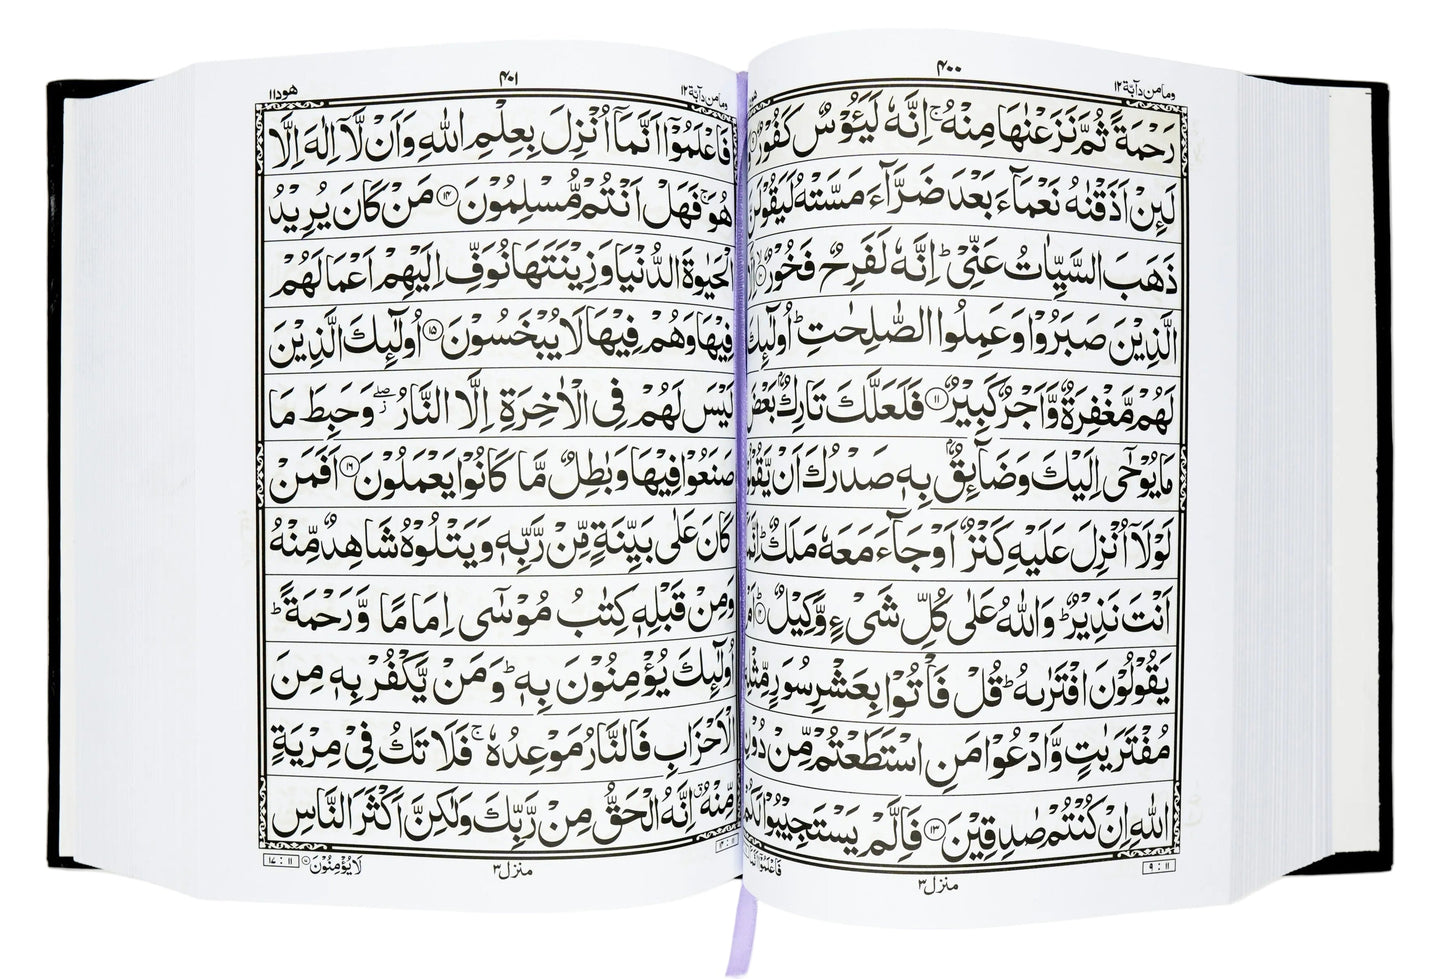 ۴۰۰
ومامن دآبة ۱۲
رَحْمَةً ثُمَّ نَزَعْنٰهَا مِنْهُ ۚ اِنَّهٗ لَيَـُٔوْسٌ كَفُوْرٌ
لَئِنْ اَذَقْنٰهُ نَعْمَآءَ بَعْدَ ضَرَّآءَ مَسَّتْهُ لَيَقُوْلَنَّ
ذَهَبَ السَّيِّاٰتُ عَنِّىْ ؕ اِنَّهٗ لَفَرِحٌ فَخُوْرٌ ۙ ۱۰
الَّذِيْنَ صَبَرُوْا وَعَمِلُوا الصّٰلِحٰتِ ؕ اُولٰٓئِكَ
لَهُمْ مَّغْفِرَةٌ وَّاَجْرٌ كَبِيْرٌ ۱۱ فَلَعَلَّكَ تَارِكٌۢ بَعْضَ
مَا يُوْحٰۤى اِلَيْكَ وَضَآئِقٌۢ بِهٖ صَدْرُكَ اَنْ يَّقُوْلُوْا
لَوْلَاۤ اُنْزِلَ عَلَيْهِ كَنْزٌ اَوْ جَآءَ مَعَهٗ مَلَكٌ ؕ اِنَّمَاۤ
اَنْتَ نَذِيْرٌ ؕ وَاللّٰهُ عَلٰى كُلِّ شَىْءٍ وَّكِيْلٌ ؕ ۱۲ اَمْ
يَقُوْلُوْنَ افْتَرٰىهُ ؕ قُلْ فَاْتُوْا بِعَشْرِ سُوَرٍ مِّثْلِهٖ
مُفْتَرَيٰتٍ وَّادْعُوْا مَنِ اسْتَطَعْتُمْ مِّنْ دُوْنِ
اللّٰهِ اِنْ كُنْتُمْ صٰدِقِيْنَ ۱۳ فَاِلَّمْ يَسْتَجِيْبُوْا لَكُمْ
فَاعْلَمُوْۤا
۹ : ۱۱
منزل ۳
۴۰۱
ومامن دآبة ۱۲
هود ۱۱
فَاعْلَمُوْۤا اَنَّمَاۤ اُنْزِلَ بِعِلْمِ اللّٰهِ وَاَنْ لَّاۤ اِلٰهَ اِلَّا
هُوَ ۚ فَهَلْ اَنْتُمْ مُّسْلِمُوْنَ ۱۴ مَنْ كَانَ يُرِيْدُ
الْحَيٰوةَ الدُّنْيَا وَزِيْنَتَهَا نُوَفِّ اِلَيْهِمْ اَعْمَالَهُمْ
فِيْهَا وَهُمْ فِيْهَا لَا يُبْخَسُوْنَ ۱۵ اُولٰٓئِكَ الَّذِيْنَ
لَيْسَ لَهُمْ فِى الْاٰخِرَةِ اِلَّا النَّارُ ۖز وَحَبِطَ مَا
صَنَعُوْا فِيْهَا وَبٰطِلٌ مَّا كَانُوْا يَعْمَلُوْنَ ۱۶ اَفَمَنْ
كَانَ عَلٰى بَيِّنَةٍ مِّنْ رَّبِّهٖ وَيَتْلُوْهُ شَاهِدٌ مِّنْهُ
وَمِنْ قَبْلِهٖ كِتٰبُ مُوْسٰٓى اِمَامًا وَّرَحْمَةً ؕ
اُولٰٓئِكَ يُؤْمِنُوْنَ بِهٖ ؕ وَمَنْ يَّكْفُرْ بِهٖ مِنَ
الْاَحْزَابِ فَالنَّارُ مَوْعِدُهٗ ۚ فَلَا تَكُ فِىْ مِرْيَةٍ
مِّنْهُ ۗ اِنَّهُ الْحَقُّ مِنْ رَّبِّكَ وَلٰكِنَّ اَكْثَرَ النَّاسِ
لَا يُؤْمِنُوْنَ
۱۷ : ۱۱
منزل ۳